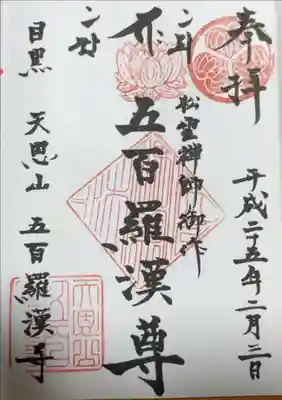 奉拝
平成二五年二月三日
松雲禅師御作
五百羅漢尊
目黒 天恩山 五百羅漢寺